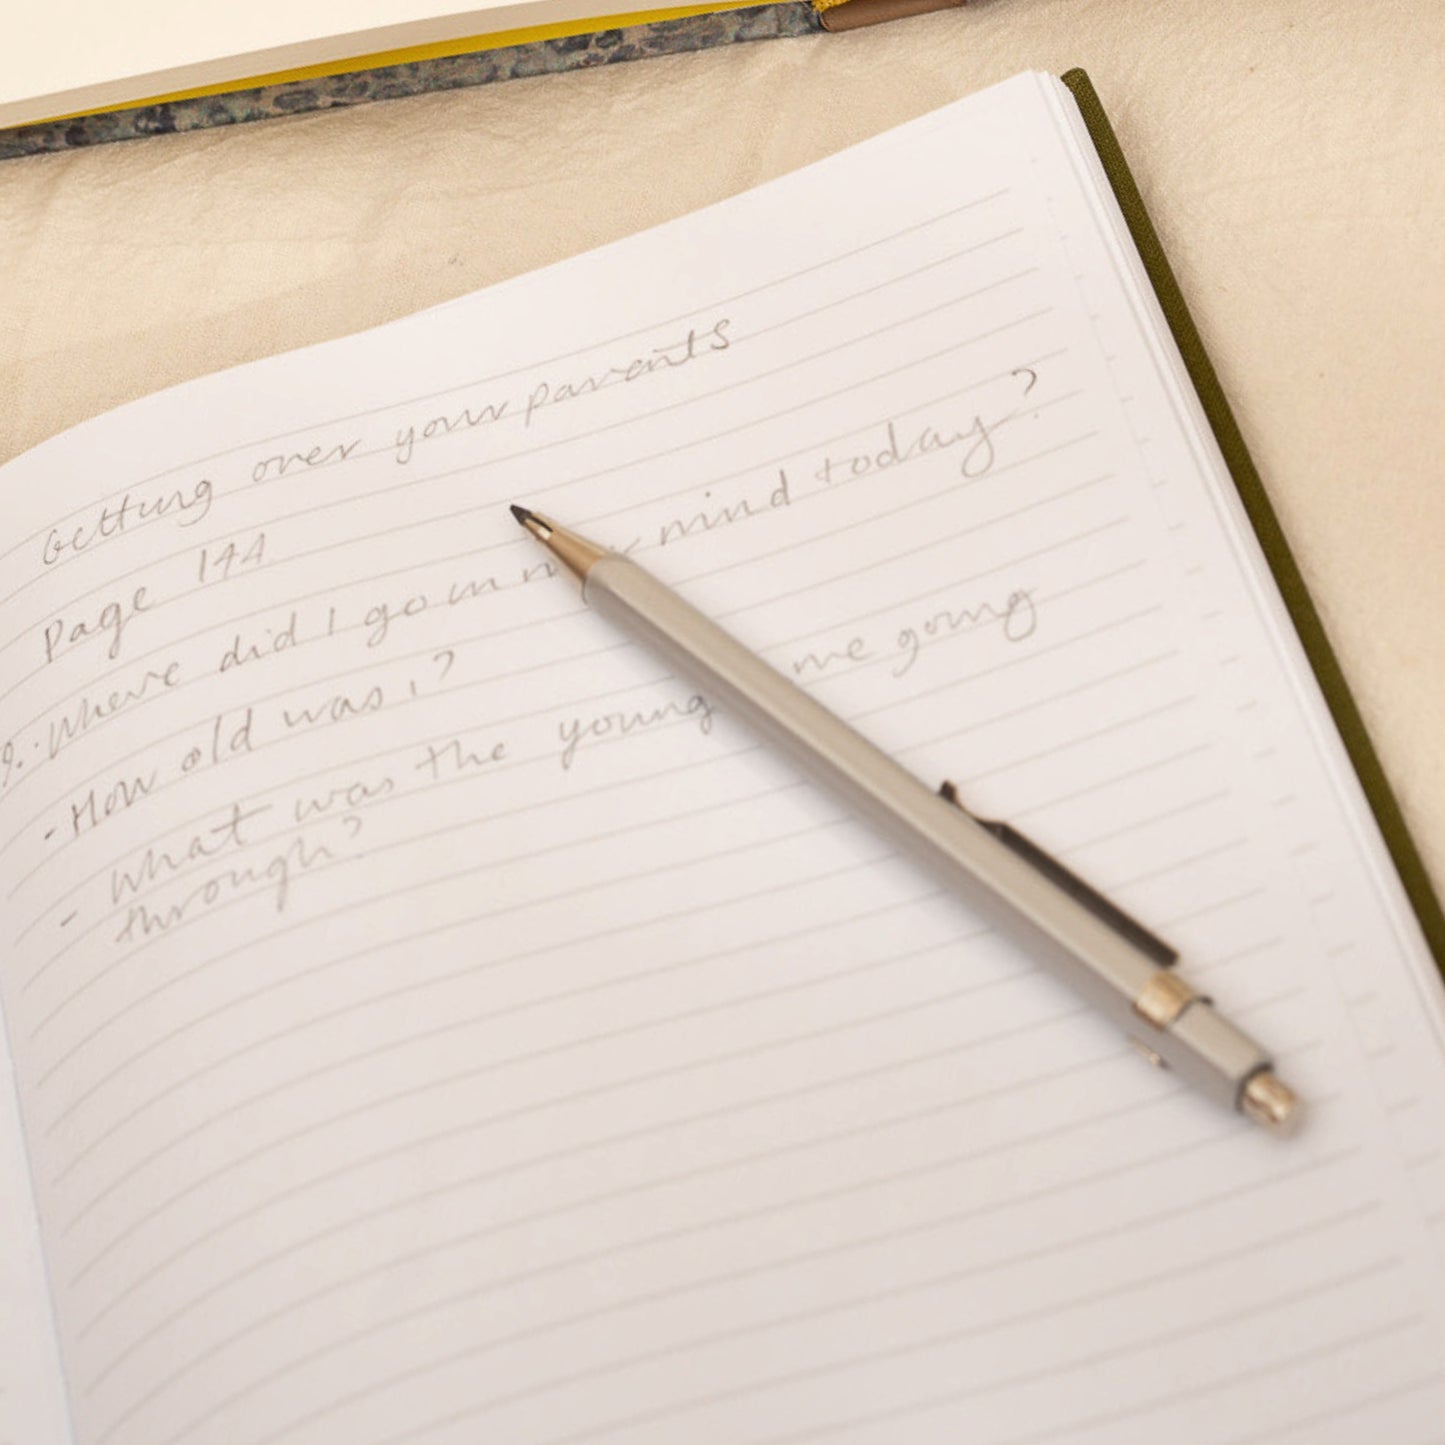 Getting over your parents
Page 144
9. Where did I go in my mind today?
- How old was i?
- What was the young me going
through?